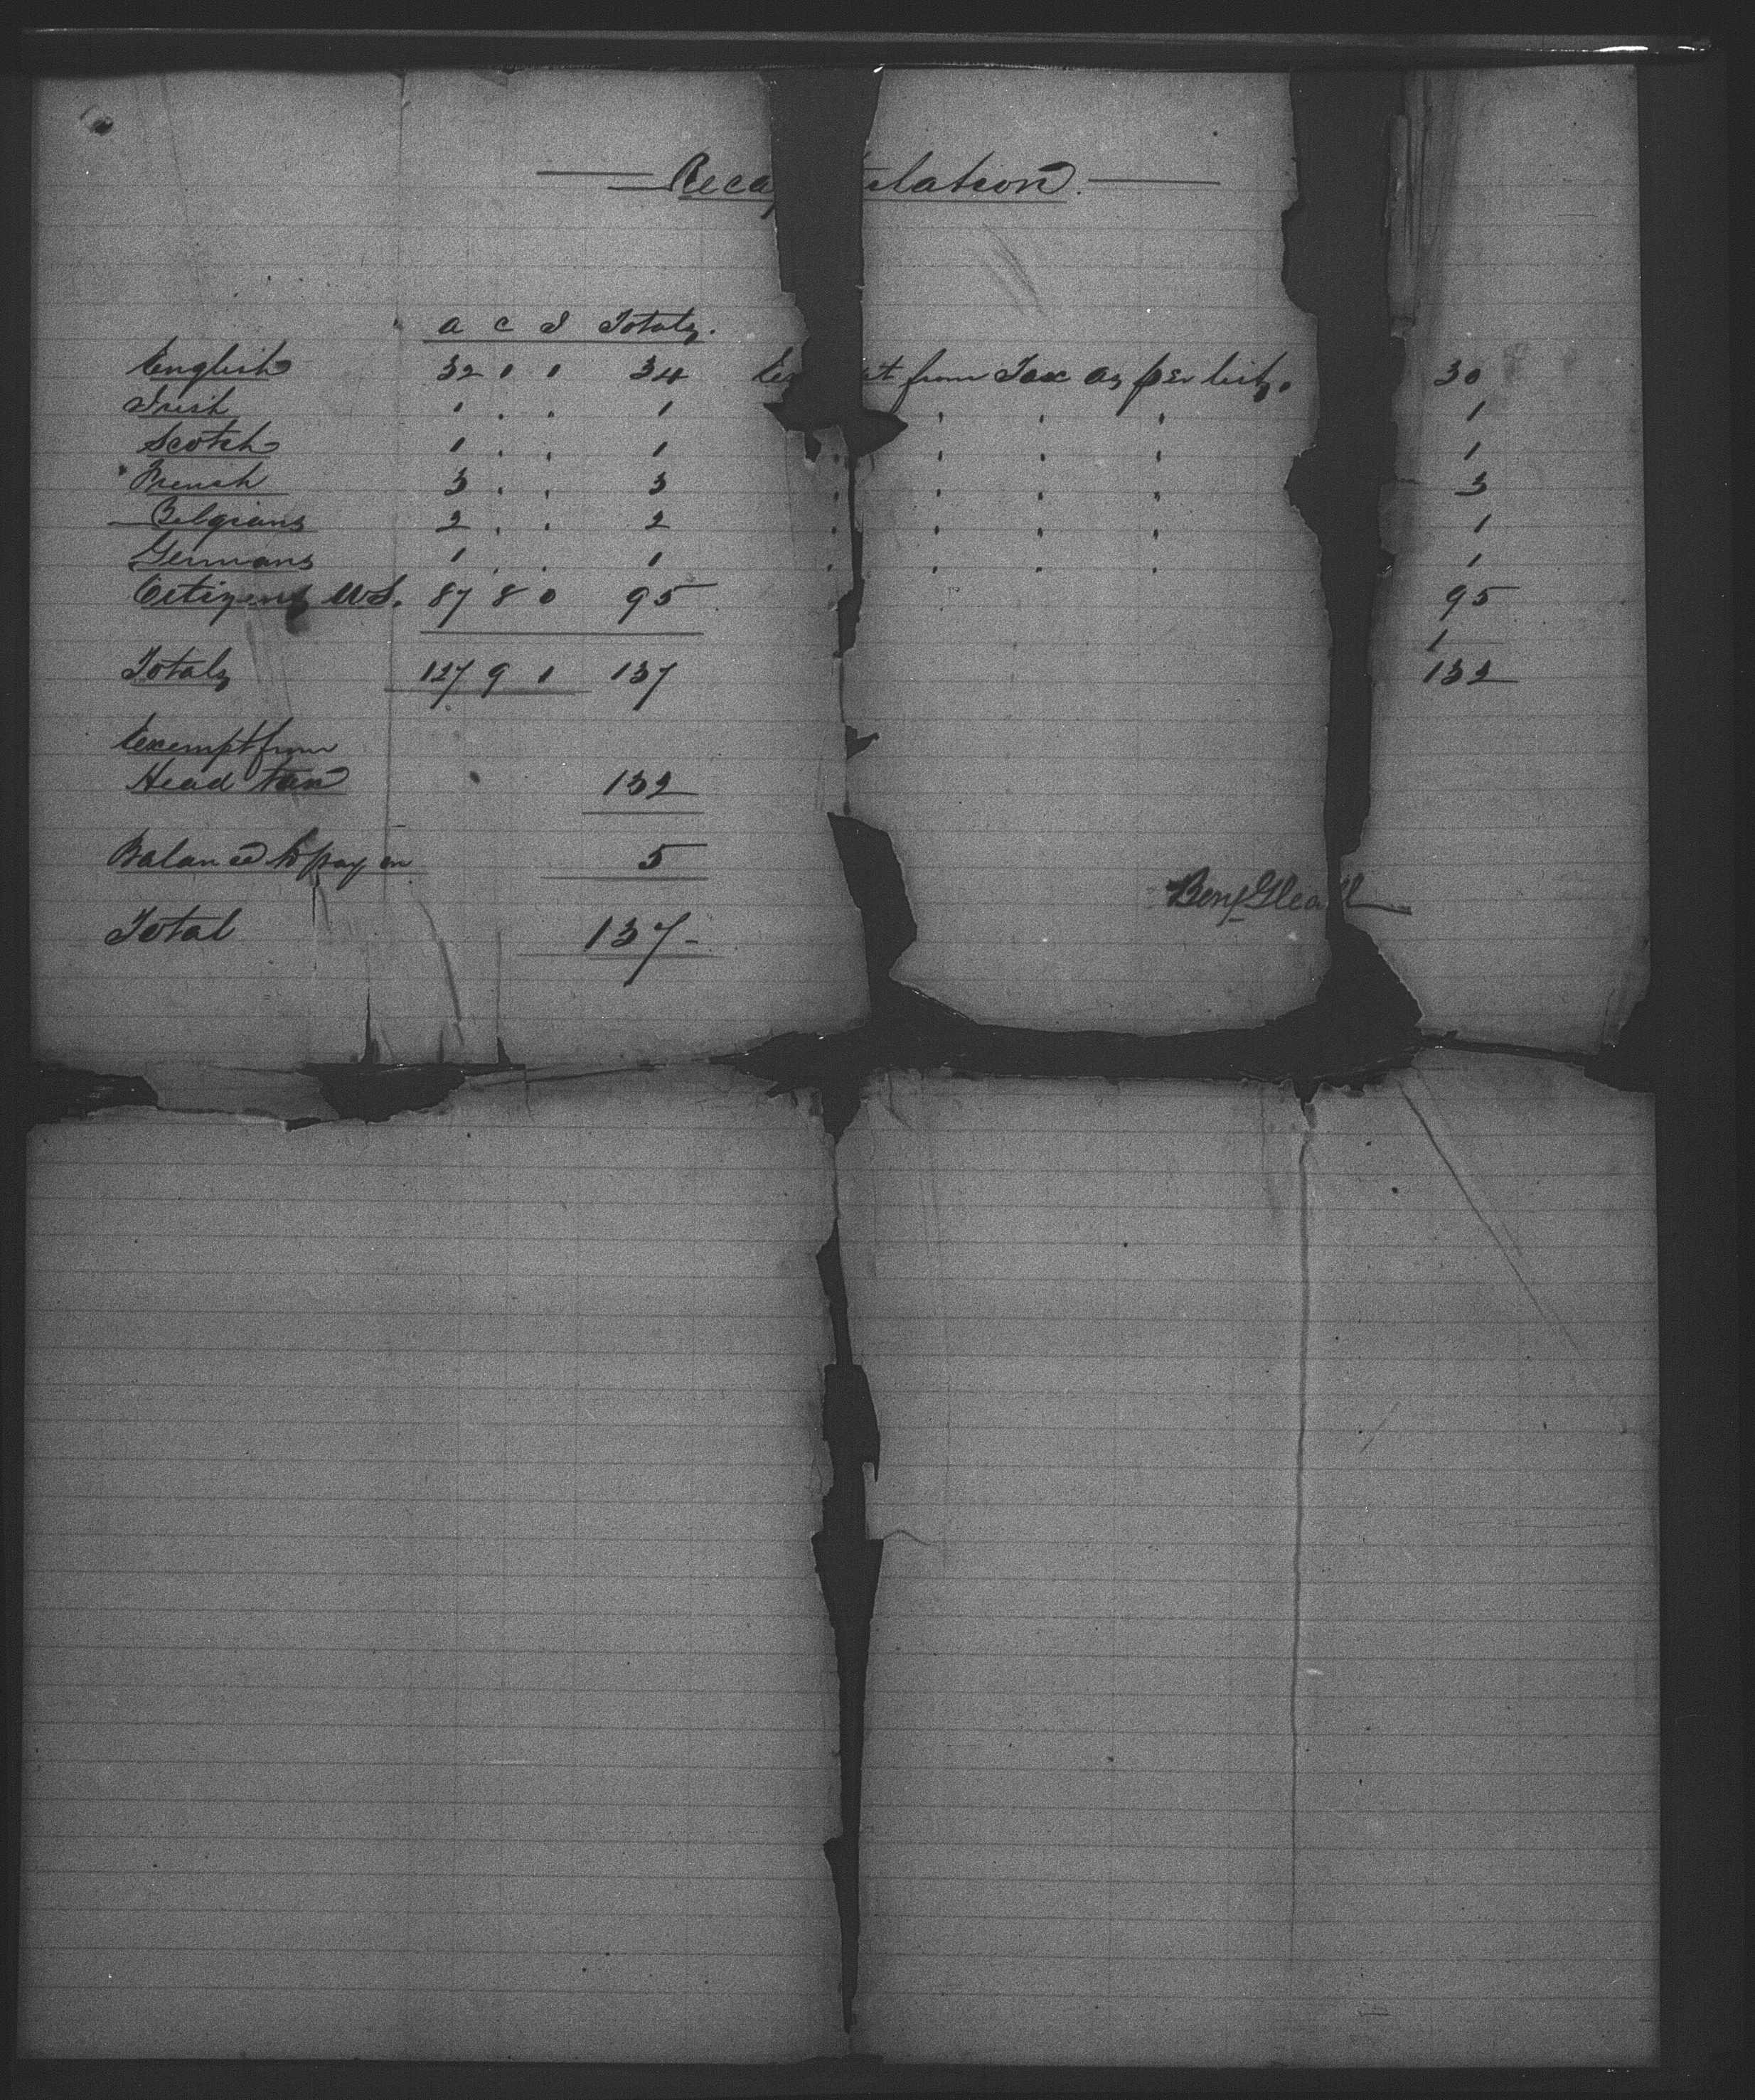 Recap tulation.
a c I Totals.
English 32 1 1 34 Ex pt from Tax as per list. 30
Irish 1 . . 1 " " " 1
Scotch 1 . . 1 " " " " 1
French 3 . . 3 " " " " 3
Belgians 2 . . 2 " " " " 1
Germans 1 . . 1 " " " " 1
Citizens U.S. 87 8 0 95 95
1
Totals 127 9 1 137 132
Exempt from
Head tax 132
Balance to pay on 5
Total 137-